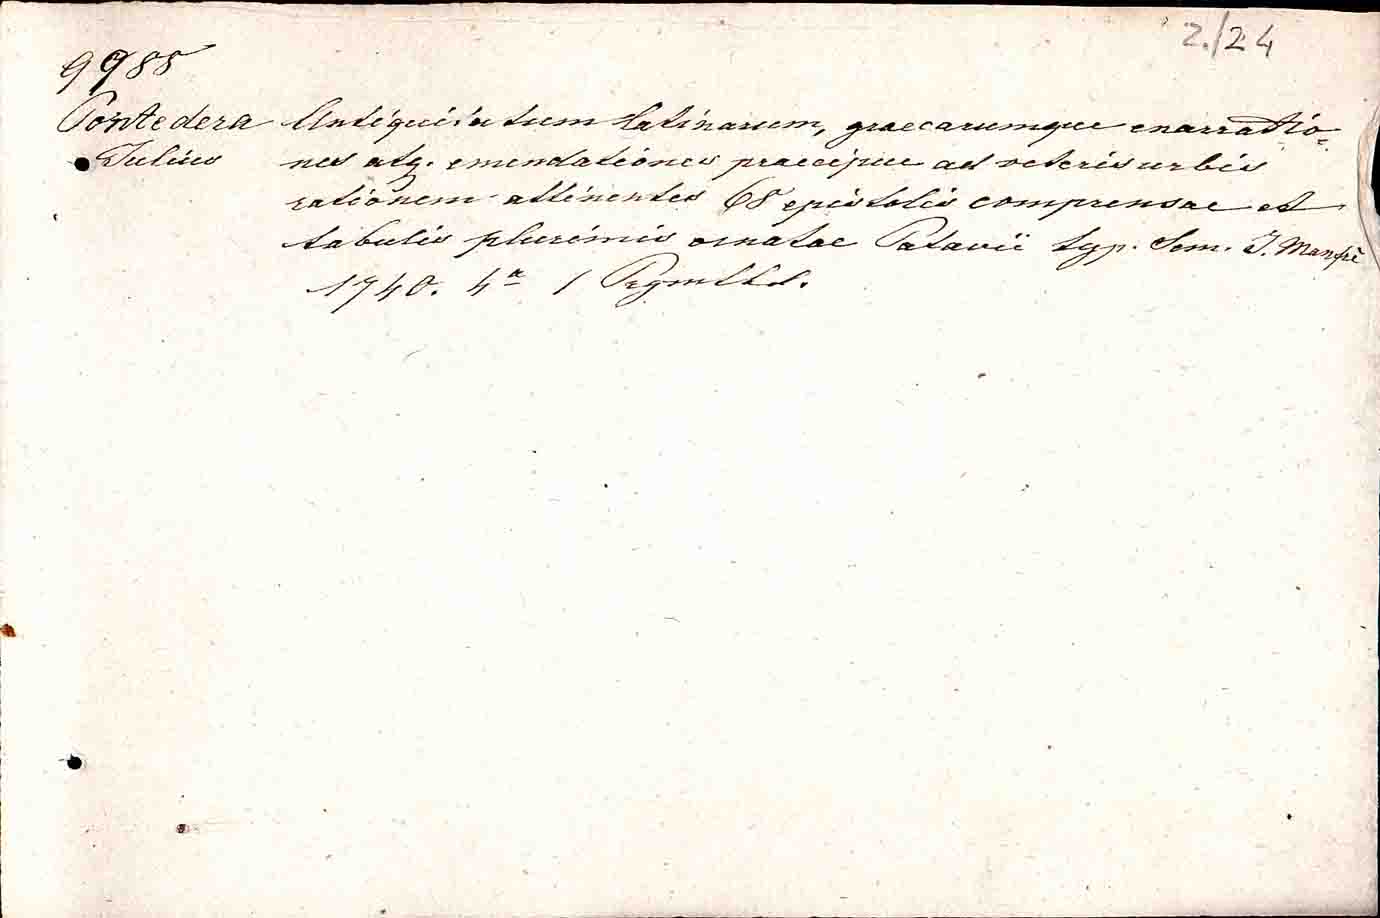 2./24
9985
Pontedera Antiquitatum latinarum, graecarumque enarratio-
Julius nes atq. emendationes praecipue ad veteris urbis
rationem attinentes 68 epistolis comprensae et
tabulis plurimis ornatae Patavii typ. Sem. J. Manfrè
1740. 4° 1